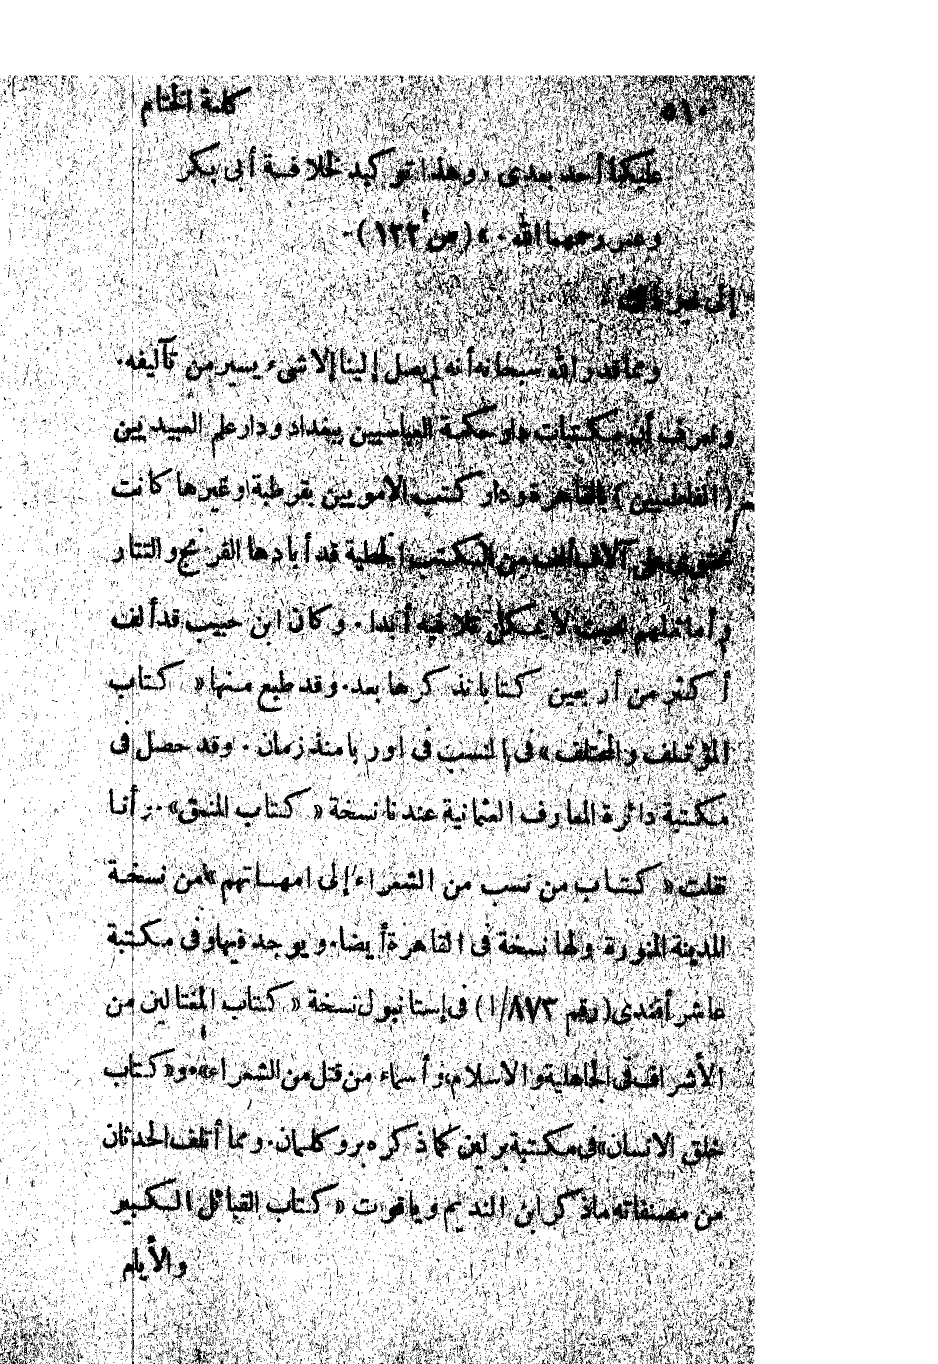 ٥١٠ كلمة الختام
عليكما أحد بعدى ، وهذا توكيد لخلافة أبى بكر
وعمر رحمهما الله . » ( ص ١٢٢ ) .
إلى غير ذلك
ومما قدر الله سبحانه أنه لم يصل إلينا إلا شىء يسير من تآليفه .
ولعرف أن مكتبات دار حكمة العباسيين ببغداد ودار علم العبيديين
( الفاطميين ) بالقاهرة ودار كتب الامويين بقرطبة وغيرها كانت
تحتوى على آلاف ألف من الكتب الخطية قد أبادها الفرنج والتتار
وأماثلهم بحيث لا يمكن تلافيه أبدا . وكان ابن حبيب قد ألف
أكثر من أربعين كتابا نذكرها بعد . وقد طبع منها « كتاب
المؤتلف والمختلف » فى النسب فى اوربا منذ زمان . وقد حصل فى
مكتبة دائرة المعارف العثمانية عندنا نسخة « كتاب المنمق » . وأنا
نقلت « كتاب من نسب من الشعراء إلى امهاتهم » من نسخة
المدينة المنورة ولها نسخة فى القاهرة أيضا . ويوجد فيها وفى مكتبة
عاشر أفندى ( رقم ٨٧٣/١ ) فى إستانبول نسخة « كتاب المغتالين من
الأشراف فى الجاهلية والاسلام وأسماء من قتل من الشعراء » . و « كتاب
خلق الانسان » فى مكتبة برلين كما ذكره بروكلمان . ومما أتلف الحدثان
من مصنفاته ماذكر ابن النديم وياقوت « كتاب القبائل الكبير
والأيام